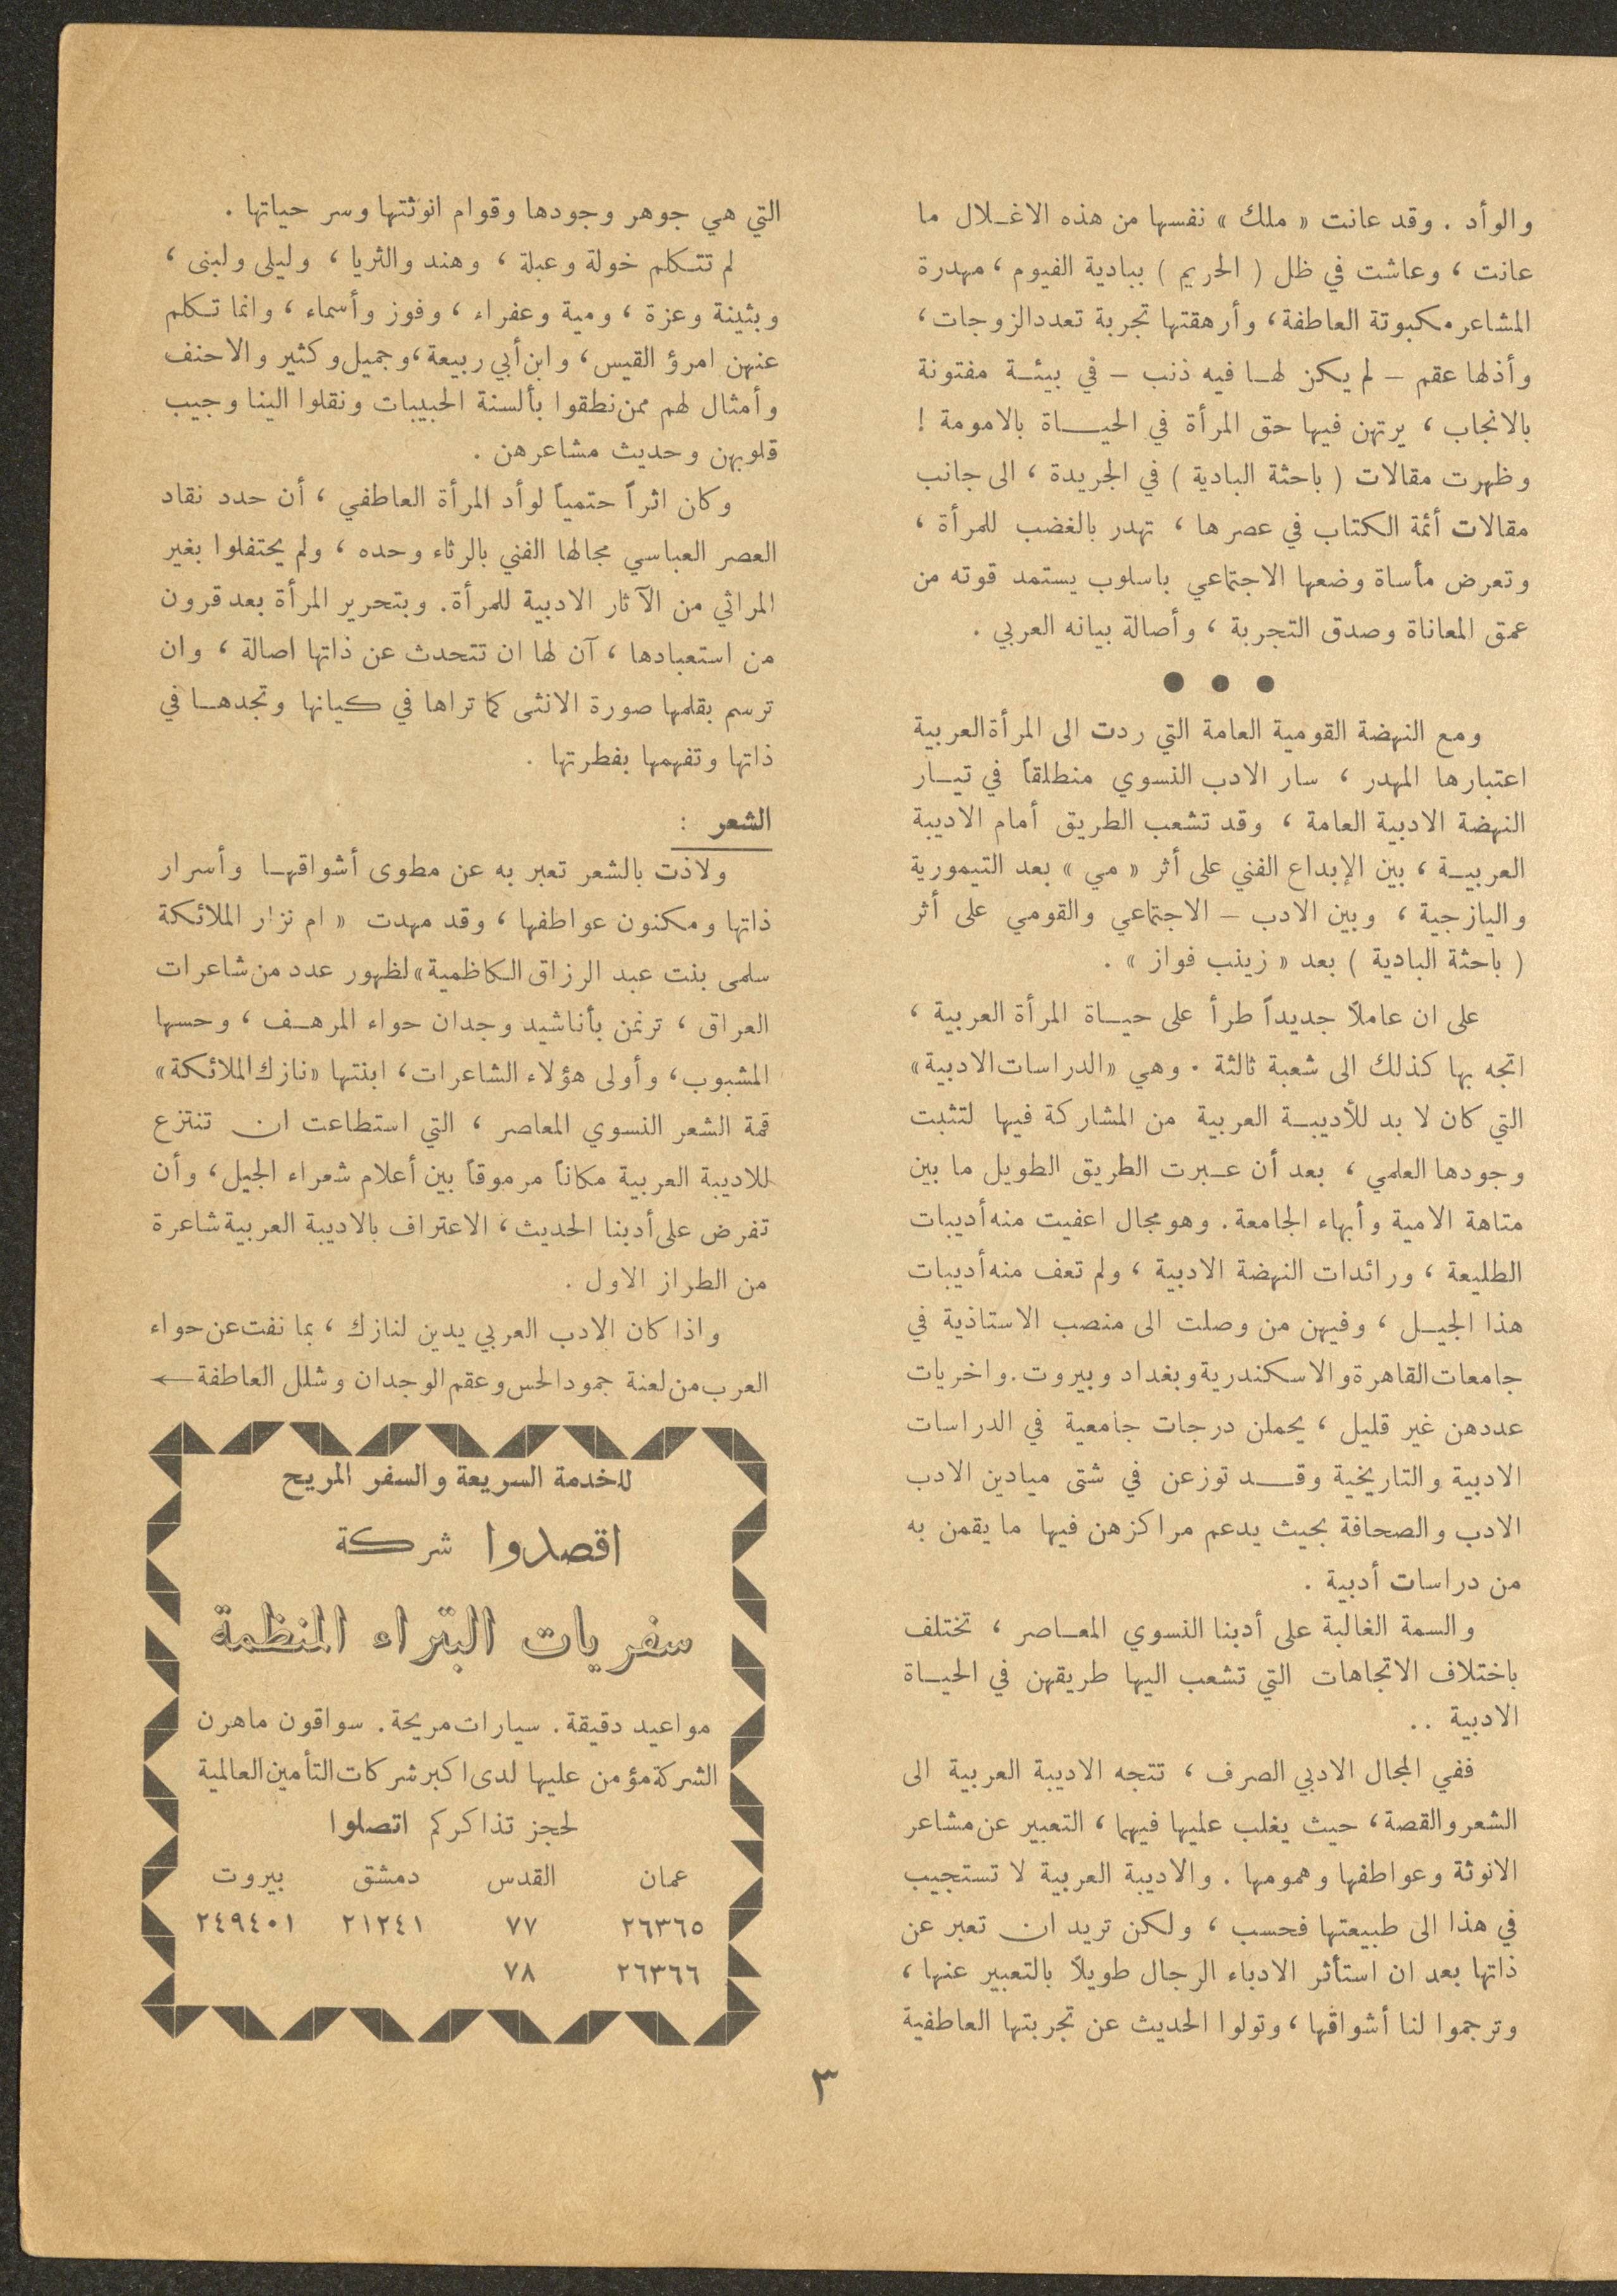 والوأد . وقد عانت « ملك » نفسها من هذه الاغلال ما
عانت ، وعاشت في ظل ( الحريم ) ببادية الفيوم ، مهدرة
المشاعر مكبوتة العاطفة ، وأرهقتها تجربة تعدد الزوجات ،
وأذلها عقم – لم يكن لها فيه ذنب – في بيئة مفتونة
بالانجاب ، يرتهن فيها حق المرأة في الحياة بالامومة !
وظهرت مقالات ( باحثة البادية ) في الجريدة ، الى جانب
مقالات أئمة الكتاب في عصرها ، تهدر بالغضب للمرأة ،
وتعرض مأساة وضعها الاجتماعي باسلوب يستمد قوته من
عمق المعاناة وصدق التجربة ، وأصالة بيانه العربي .
● ● ●
ومع النهضة القومية العامة التي ردت الى المرأة العربية
اعتبارها المهدر ، سار الادب النسوي منطلقاً في تيار
النهضة الادبية العامة ، وقد تشعب الطريق أمام الاديبة
العربية ، بين الإبداع الفني على أثر « مي » بعد التيمورية
واليازجية ، وبين الادب – الاجتماعي والقومي على أثر
( باحثة البادية ) بعد « زينب فواز » .
على ان عاملاً جديداً طرأ على حياة المرأة العربية ،
اتجه بها كذلك الى شعبة ثالثة . وهي « الدراسات الادبية »
التي كان لا بد للأديبة العربية من المشاركة فيها لتثبت
وجودها العلمي ، بعد أن عبرت الطريق الطويل ما بين
متاهة الامية وأبهاء الجامعة . وهو مجال اعفيت منه أديبات
الطليعة ، ورائدات النهضة الادبية ، ولم تعف منه أديبات
هذا الجيل ، وفيهن من وصلت الى منصب الاستاذية في
جامعات القاهرة والاسكندرية وبغداد وبيروت . واخريات
عددهن غير قليل ، يحملن درجات جامعية في الدراسات
الادبية والتاريخية وقد توزعن في شتى ميادين الادب
الادب والصحافة بحيث يدعم مراكزهن فيها ما يقمن به
من دراسات أدبية .
والسمة الغالبة على أدبنا النسوي المعاصر ، تختلف
باختلاف الاتجاهات التي تشعب اليها طريقهن في الحياة
الادبية ..
ففي المجال الادبي الصرف ، تتجه الاديبة العربية الى
الشعر والقصة ، حيث يغلب عليها فيهما ، التعبير عن مشاعر
الانوثة وعواطفها وهمومها . والاديبة العربية لا تستجيب
في هذا الى طبيعتها فحسب ، ولكن تريد ان تعبر عن
ذاتها بعد ان استأثر الادباء الرجال طويلاً بالتعبير عنها ،
وترجموا لنا أشواقها ، وتولوا الحديث عن تجربتها العاطفية
التي هي جوهر وجودها وقوام انوثتها وسر حياتها .
لم تتكلم خولة وعبلة ، وهند والثريا ، وليلى ولبنى ،
وبثينة وعزة ، ومية وعفراء ، وفوز وأسماء ، وانما تكلم
عنهن امرؤ القيس ، وابن أبي ربيعة ، وجميل وكثير والاحنف
وأمثال لهم ممن نطقوا بألسنة الحبيبات ونقلوا الينا وجيب
قلوبهن وحديث مشاعرهن .
وكان اثراً حتمياً لوأد المرأة العاطفي ، أن حدد نقاد
العصر العباسي مجالها الفني بالرثاء وحده ، ولم يحتفلوا بغير
المراثي من الآثار الادبية للمرأة . وبتحرير المرأة بعد قرون
من استعبادها ، آن لها ان تتحدث عن ذاتها اصالة ، وان
ترسم بقلمها صورة الانثى كما تراها في كيانها وتجدها في
ذاتها وتفهمها بفطرتها .
الشعر :
ولاذت بالشعر تعبر به عن مطوى أشواقها وأسرار
ذاتها ومكنون عواطفها ، وقد مهدت « ام نزار الملائكة
سلمى بنت عبد الرزاق الكاظمية » لظهور عدد من شاعرات
العراق ، ترنمن بأناشيد وجدان حواء المرهف ، وحسها
المشبوب ، وأولى هؤلاء الشاعرات ، ابنتها « نازك الملائكة »
قمة الشعر النسوي المعاصر ، التي استطاعت ان تنتزع
للاديبة العربية مكاناً مرموقاً بين أعلام شعراء الجيل ، وأن
تفرض على أدبنا الحديث ، الاعتراف بالاديبة العربية شاعرة
من الطراز الاول .
واذا كان الادب العربي يدين لنازك ، بما نفت عن حواء
العرب من لعنة جمود الحس وعقم الوجدان وشلل العاطفة ←
للخدمة السريعة والسفر المريح
اقصدوا شركة
سفريات البتراء المنظمة
مواعيد دقيقة . سيارات مريحة . سواقون ماهرن
الشركة مؤمن عليها لدى اكبر شركات التأمين العالمية
لحجز تذاكركم اتصلوا
عمان القدس دمشق بيروت
٢٦٣٦٥ ٧٧ ٢١٢٤١ ٢٤٩٤٠١
٢٦٣٦٦ ٧٨
٣